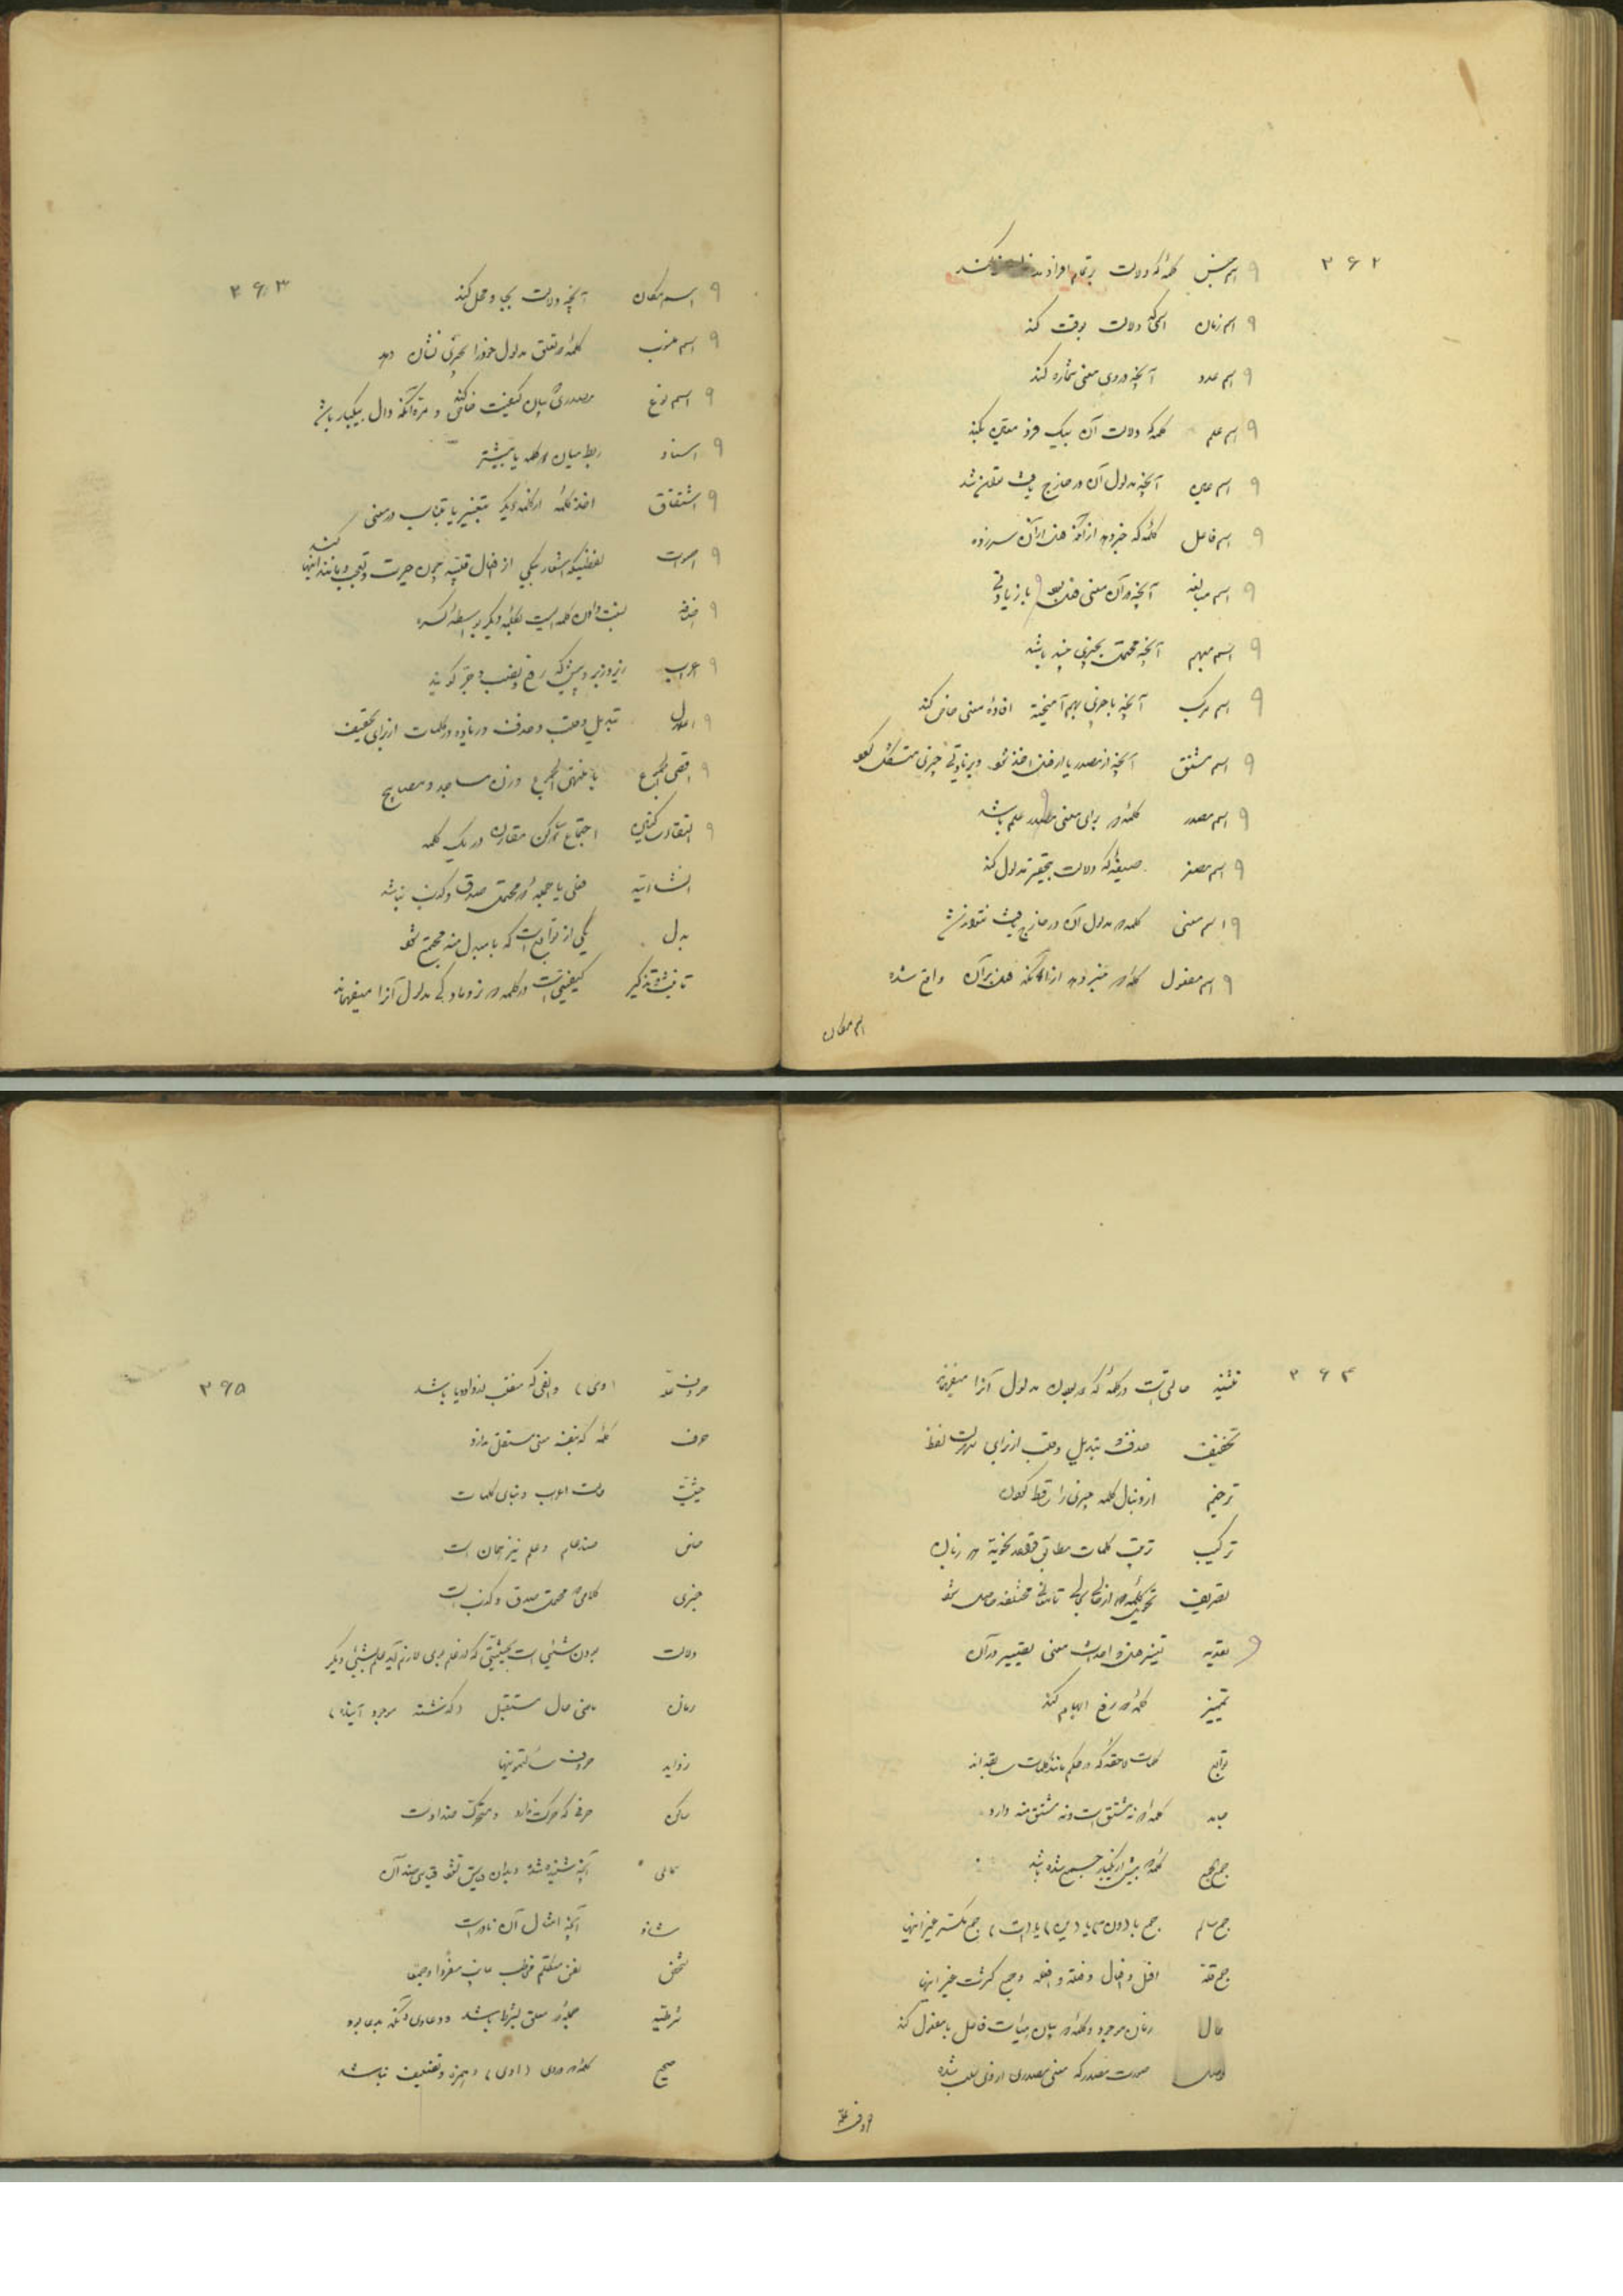 ۳۶۲
اسم جنس کلمهٔ که دلالت بر تمام افراد کند
اسم زمان اسمی که دلالت بوقت کند
اسم عدد آنچه در وی معنی شماره کند
اسم علم کلمهٔ که دلالت آن بیک فرد معین بکند
اسم عین آنچه مدلول آن در خارج یافت تواند شد
اسم فاعل کلمهٔ که خبر دهد از آنکه فعل از آن سر زده
اسم مبالغه آنچه در آن معنی فعل بود با زیادتی
اسم مبهم آنچه محتمل بچیزی چند باشد
اسم مرکب آنچه با چیزی بهم آمیخته افادهٔ معنی خاص کند
اسم مشتق آنچه از مصدر یا از فعل اخذ شود و بزیادتی چیزی متشکل شود
اسم مصدر کلمهٔ که برای معنی مصدر علم باشد
اسم مصغر صیغهٔ که دلالت بتحقیر مدلول کند
اسم معنی کلمهٔ که مدلول آن در خارج یافت نتواند شد
اسم مفعول کلمهٔ که خبر دهد از آنکه فعل بر آن واقع شده
اسم مکان
۳۶۳
اسم مکان آنچه دلالت بجا و محل کند
اسم منسوب کلمهٔ که تعلق مدلول خود را بچیزی نشان دهد
اسم نوع مصدری که بیان کیفیت خاص کند و مره آنکه دال بیکبار باشد
اسناد ربط میان دو کلمه یا بیشتر
اشتقاق اخذ کلمهٔ از کلمهٔ دیگر بتغییر یا تناسب در معنی
اصوات لفظی که اشعار بیکی از افعال قلبیه چون حیرت و تعجب و مانند اینها کند
اضافه نسبت دادن کلمه ایست بکلمهٔ دیگر بواسطهٔ کسره
اعراب زیر و زبر و پیش که رفع و نصب و جر گویند
اعلال تبدیل و قلب و حذف و زیاده در کلمات از برای تخفیف
اقصی الجموع یا منتهی الجموع وزن مساجد و مصابیح
التقاء ساکنین اجتماع دو ساکن مقارن در یک کلمه
انشائیه فعلی یا جمله که محتمل صدق و کذب نباشد
بدل یکی از توابع است که با مبدل منه جمع شود
تانیث و تذکیر کیفیتی است در کلمه که نر و مادگی مدلول آنرا میفهماند
۳۶۴
تثنیه حالتی است در کلمهٔ که دو بودن مدلول آنرا میفهماند
تخفیف حذف و تبدیل و قلب از برای سهولت لفظ
ترخیم از دنبال کلمه چیزی را ساقط نمودن
ترکیب ترتیب کلمات مطابق قواعد نحویهٔ هر زبان
تصریف تحویل کلمه از حالی بحالی تا معانی مختلفه حاصل شود
تعدیه تغییر فعل و احداث معنی تصییر در آن
تمییز کلمهٔ که رفع ابهام کند
توابع کلمات لاحقه که در حکم مانند کلمات سابقه اند
جامد کلمهٔ که نه مشتق است و نه مشتق منه دارد
جمع الجمع کلمهٔ که بیش از یکبار جمع شده باشد
جمع سالم جمع با (ون) یا (ین) یا (ات) جمع مکسر غیر اینها
جمع قلة افعل و افعال و فعلة و افعله و جمع کثرت غیر اینها
حال زمان موجود و کلمهٔ که بیان هیأت فاعل یا مفعول کند
صورت مصدر که معنی مصدری از وی سلب شده
حروف علة
۳۶۵
حروف علة (وی) و الفی که منقلب از واو یا یا باشد
حرف کلمهٔ که بنفسه معنی مستقل ندارد
حیثیت علت اعراب و بنای کلمات
خاص ضد عام و علم نیز همان است
خبری کلامی که محتمل صدق و کذب است
دلالت بودن شیئی است بحیثیتی که از علم بوی لازم آید علم بشیئی دیگر
زمان ماضی حال مستقبل (گذشته موجود آینده)
زواید حروف سألتمونیها
ساکن حرفی که حرکت ندارد و متحرک ضد اوست
سماعی آنچه شنیده شده و بدان قیاس نشود قیاسی ضد آن
شاذ آنچه امثال آن نادر است
شخص یعنی متکلم مخاطب غایب مفردا و جمعا
شرطیه جمله که معلق بشرط باشد
صحیح کلمهٔ که در وی (اوی) و همزه و تضعیف نباشد